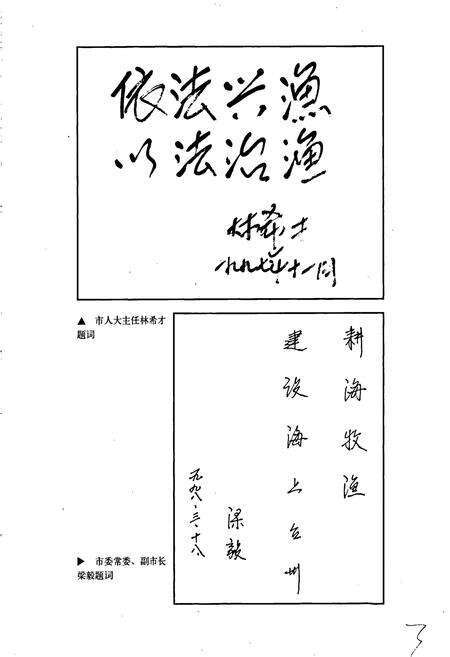 依法兴渔
以法治渔
林希才
一九九七年十一月
▲ 市人大主任林希才
题词
耕海牧渔
建设海上台州
梁毅
一九九八.三.十八
▶ 市委常委、副市长
梁毅题词
3